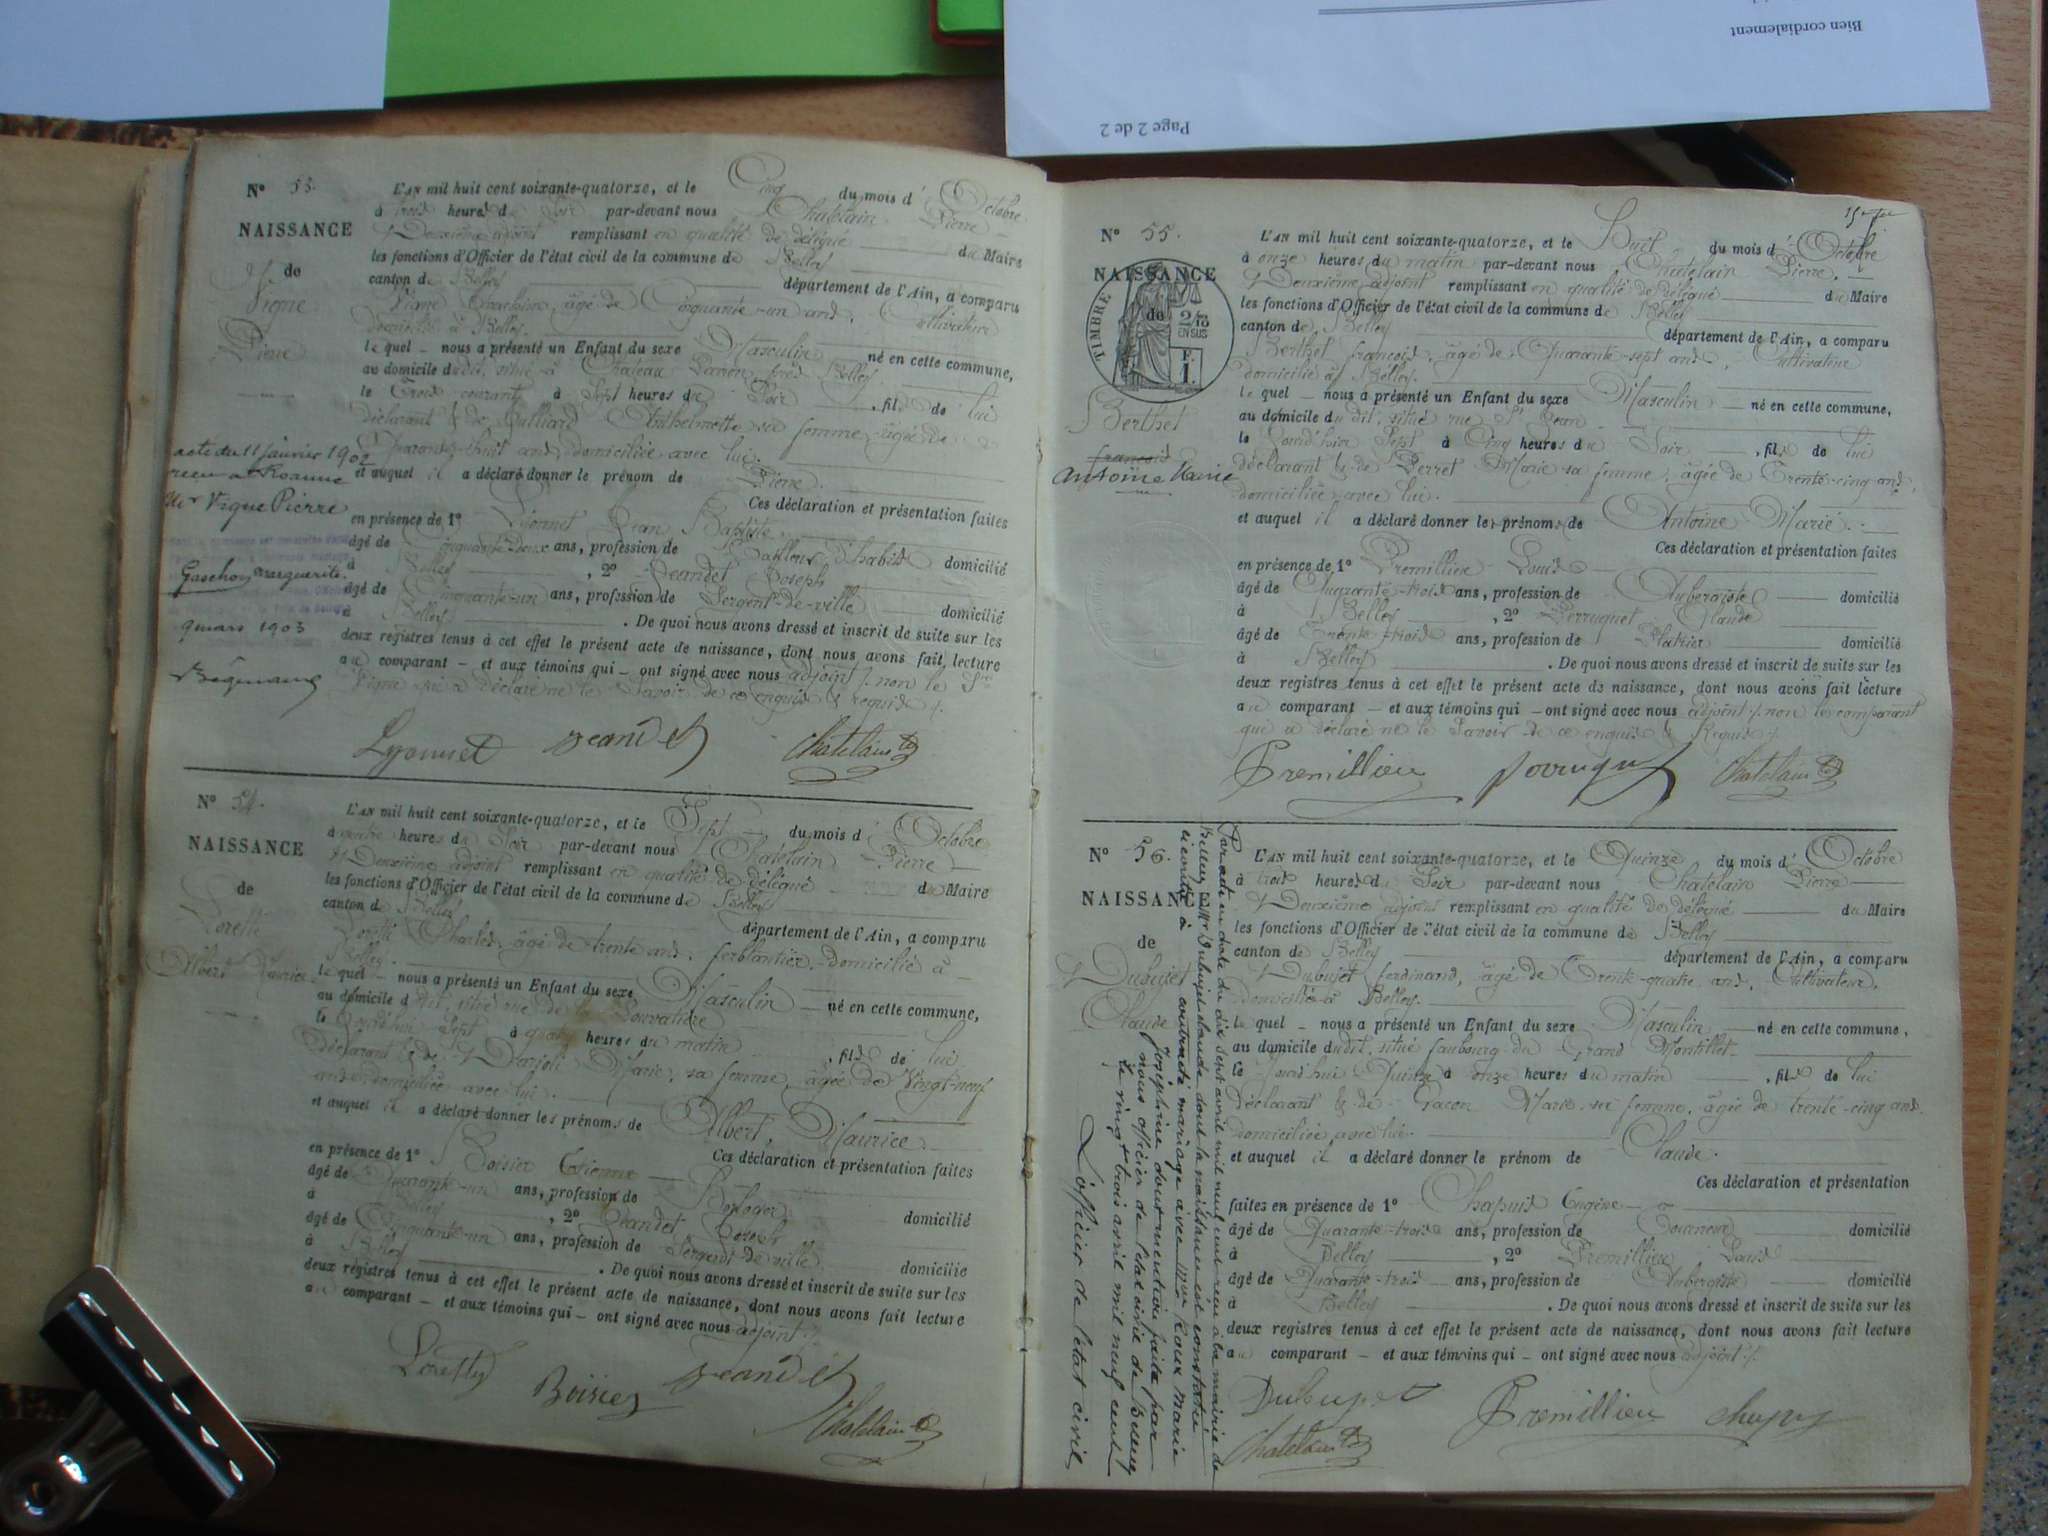 Bien cordialement
Page 2 de 2
N° 53.
NAISSANCE
de
Vigne
Pierre
L'AN mil huit cent soixante-quatorze, et le Cinq du mois d'Octobre
à trois heures du Soir par-devant nous Chatelain Pierre
Deuxième adjoint remplissant en qualité de délégué du Maire
les fonctions d'Officier de l'état civil de la commune de Belley
canton de Belley département de l'Ain, a comparu
Vigne âgé de Cinquante-un ans, Cultivateur
domicilié à Belley.
lequel nous a présenté un Enfant du sexe Masculin né en cette commune,
au domicile dudit, situé à Chateau près Belley
le Trois courant à Sept heures du Soir, fils de lui
déclarant & de Anthelmette sa femme, âgée de
Quarante-huit ans, domiciliée avec lui.
et auquel il a déclaré donner le prénom de Pierre.
Ces déclaration et présentation faites
en présence de 1° Lyonnet Jean Baptiste
âgé de Cinquante-deux ans, profession de Tailleur d'habits domicilié
à Belley, 2° Jeandet Joseph
âgé de Cinquante-un ans, profession de Sergent-de-ville domicilié
à Belley. De quoi nous avons dressé et inscrit de suite sur les
deux registres tenus à cet effet le présent acte de naissance, dont nous avons fait lecture
au comparant et aux témoins qui ont signé avec nous adjoint, non le Sr
Vigne qui a déclaré ne le Savoir de ce enquis & requis
Lyonnet Jeandet Chatelain
acte du 11 janvier 1902
reçu à Roanne
Mr Vigne Pierre
Gaschon Marguerite
9 mars 1903
N° 54.
NAISSANCE
de
Loretti
Albert Maurice
L'AN mil huit cent soixante-quatorze, et le Sept du mois d'Octobre
à quatre heures du Soir par-devant nous Chatelain Pierre
Deuxième adjoint remplissant en qualité de délégué du Maire
les fonctions d'Officier de l'état civil de la commune de Belley
canton de Belley département de l'Ain, a comparu
Loretti Charles, âgé de trente ans, ferblantier, domicilié à
Belley.
lequel nous a présenté un Enfant du sexe Masculin né en cette commune,
au domicile dudit, situé rue de la
le jourd'hui Sept à quatre heures du matin, fils de lui
déclarant & de Marie, sa femme, âgée de Vingt-neuf
ans, domiciliée avec lui.
et auquel il a déclaré donner les prénoms de Albert, Maurice.
Ces déclaration et présentation faites
en présence de 1° Boisier Etienne
âgé de Quarante-un ans, profession de Horloger domicilié
à Belley, 2° Jeandet Joseph
âgé de Cinquante-un ans, profession de Sergent de ville domicilié
à Belley. De quoi nous avons dressé et inscrit de suite sur les
deux registres tenus à cet effet le présent acte de naissance, dont nous avons fait lecture
au comparant et aux témoins qui ont signé avec nous adjoint
Loretty Boisier Jeandet
Chatelain
N° 55.
NAISSANCE
TIMBRE
de
2/10
EN SUS
F.
1.
Berthet
françois
Antoine Marie
L'AN mil huit cent soixante-quatorze, et le Huit du mois d'Octobre
à onze heures du matin par-devant nous Chatelain Pierre,
Deuxième adjoint remplissant en qualité de délégué du Maire
les fonctions d'Officier de l'état civil de la commune de Belley
canton de Belley département de l'Ain, a comparu
Berthet françois, âgé de Quarante-sept ans, Cultivateur
domicilié à Belley.
lequel nous a présenté un Enfant du sexe Masculin né en cette commune,
au domicile dudit, situé rue St Jean
le jourd'hier Sept à Cinq heures du Soir, fils de lui
déclarant & de Perret Marie sa femme, âgée de Trente-cinq ans,
domiciliée avec lui.
et auquel il a déclaré donner les prénoms de Antoine Marie.
Ces déclaration et présentation faites
en présence de 1° Premillieu Louis
âgé de Quarante-trois ans, profession de Aubergiste domicilié
à Belley, 2° Perruquet Claude
âgé de Trente-trois ans, profession de Plâtrier domicilié
à Belley. De quoi nous avons dressé et inscrit de suite sur les
deux registres tenus à cet effet le présent acte de naissance, dont nous avons fait lecture
au comparant et aux témoins qui ont signé avec nous adjoint, non le comparant
qui a déclaré ne le Savoir de ce enquis & Requis
Premillieu Chatelain
N° 56.
NAISSANCE
de
Dubujet
Claude
L'AN mil huit cent soixante-quatorze, et le Quinze du mois d'Octobre
à trois heures du Soir par-devant nous Chatelain Pierre
Deuxième adjoint remplissant en qualité de délégué du Maire
les fonctions d'Officier de l'état civil de la commune de Belley
canton de Belley département de l'Ain, a comparu
Dubujet ferdinand, âgé de Trente-quatre ans, Cultivateur,
domicilié à Belley.
lequel nous a présenté un Enfant du sexe Masculin né en cette commune,
au domicile dudit, situé faubourg du Grand Montillet
le jourd'hui Quinze à onze heures du matin, fils de lui
Déclarant & de Gacon Marie sa femme, âgée de trente-cinq ans
domiciliée avec lui.
et auquel il a déclaré donner le prénom de Claude.
Ces déclaration et présentation
faites en présence de 1° Chapuis Eugène
âgé de Quarante-trois ans, profession de Tourneur domicilié
à Belley, 2° Premillieu Louis
âgé de Quarante-trois ans, profession de Aubergiste domicilié
à Belley. De quoi nous avons dressé et inscrit de suite sur les
deux registres tenus à cet effet le présent acte de naissance, dont nous avons fait lecture
au comparant et aux témoins qui ont signé avec nous adjoint
Dubujet Premillieu Chapuis
Chatelain
Par acte en date du dix sept avril mil neuf cent reçu à la mairie de
Belley Mr Dubujet Claude dont la naissance est constatée
ci contre a contracté mariage avec Mlle Roux Marie
Joséphine dont mention faite par
nous officier de l'état civil de Belley
le vingt trois avril mil neuf cent
L'officier de l'état civil